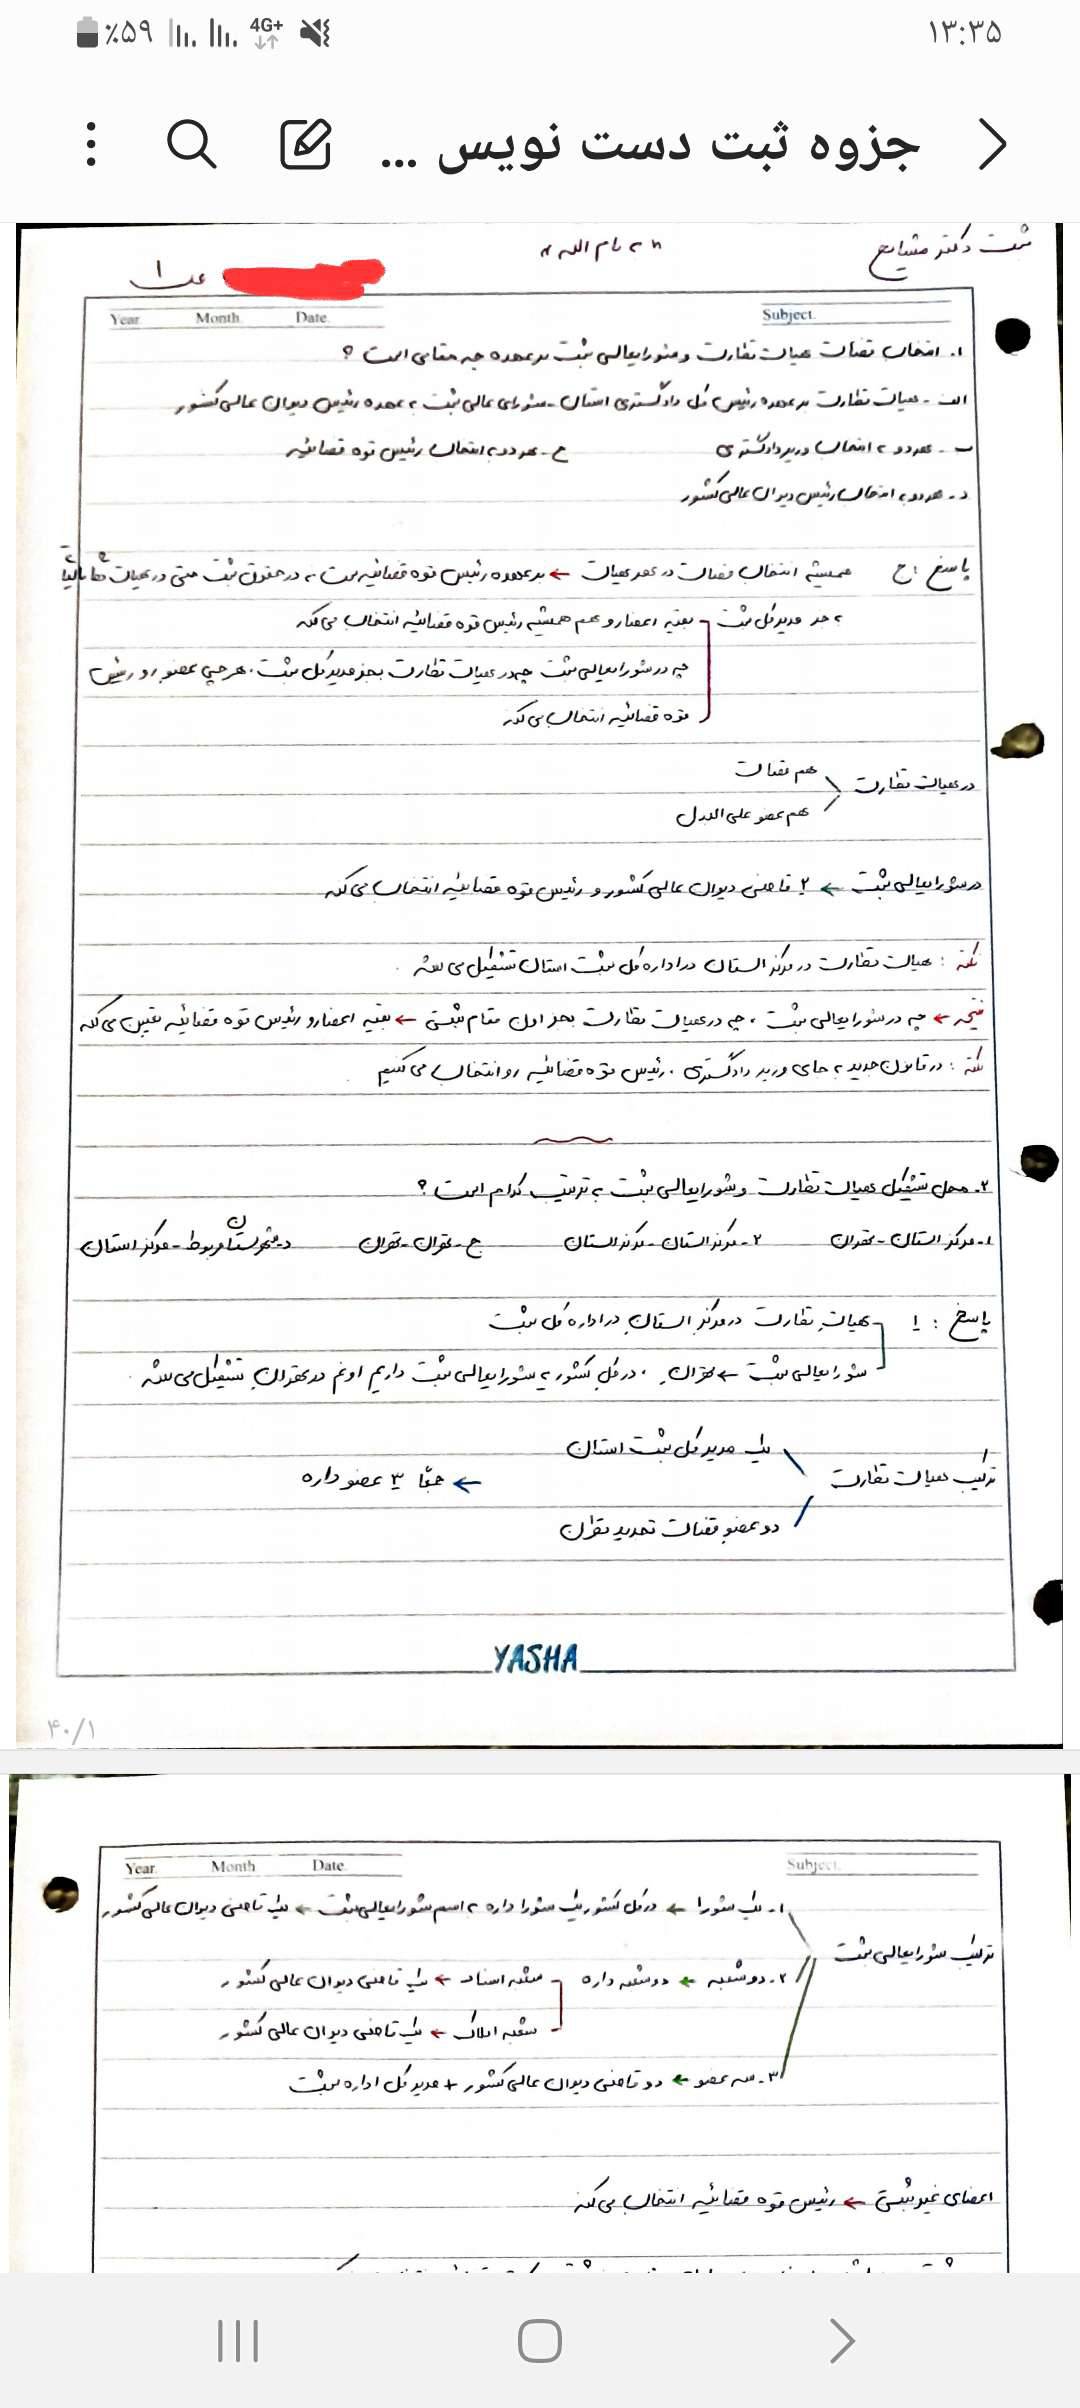 ۱۳:۳۵
4G+ ٪۵۹
جزوه ثبت دست نویس ...
ثبت دکتر مشایخ
" به نام الله "
۱
Subject.
Year. Month. Date.
۱. انتخاب قضات هیات نظارت و شورایعالی ثبت بر عهده چه مقامی است ؟
الف - هیات نظارت بر عهده رئیس کل دادگستری استان - شورای عالی ثبت به عهده رئیس دیوان عالی کشور
ب - هر دو به انتخاب وزیر دادگستری
ج - هر دو به انتخاب رئیس قوه قضائیه
د - هر دو به انتخاب رئیس دیوان عالی کشور
پاسخ : ج همیشه انتخاب قضات در هر هیات ← بر عهده رئیس قوه قضائیه ست ، در حقوق ثبت حتی در هیات
به جز مدیر کل ثبت بقیه اعضا رو هم همیشه رئیس قوه قضائیه انتخاب می کنه
چه در شورایعالی ثبت چه در هیات نظارت بجز مدیر کل ثبت ، هر چی عضو رو رئیس
قوه قضائیه انتخاب می کنه
در هیات نظارت
هم قضات
هم عضو علی البدل
در شورایعالی ثبت ← ۲ قاضی دیوان عالی کشور و رئیس قوه قضائیه انتخاب می کنه
نکته : هیات نظارت در مرکز استان در اداره کل ثبت استان تشکیل می شه .
نتیجه ← چه در شورایعالی ثبت ، چه در هیات نظارت بجز اون مقام ثبتی ← بقیه اعضا رو رئیس قوه قضائیه تعیین می کنه
نکته : در قانون جدید به جای وزیر دادگستری ، رئیس قوه قضائیه رو انتخاب می کنیم .
۲. محل تشکیل هیات نظارت و شورایعالی ثبت به ترتیب کدام است ؟
۱- مرکز استان - تهران
۲- مرکز استان - مرکز استان
ج - تهران - تهران
د - شهرستان مربوط - مرکز استان
پاسخ : ۱ هیات نظارت در مرکز استان در اداره کل ثبت
شورایعالی ثبت ← تهران ، در کل کشور یه شورایعالی ثبت داریم اونم در تهران تشکیل می شه .
ترکیب هیات نظارت
یک مدیر کل ثبت استان
دو عضو قضات تجدید نظر استان
← جمعا ۳ عضو داره
YASHA
۴۰/۱
Subject.
Year. Month. Date.
ترکیب شورایعالی ثبت
۱- یک شورا ← در کل کشور یک شورا داره به اسم شورایعالی ثبت ← یک قاضی دیوان عالی کشور
۲- دو شعبه ← دو شعبه داره
شعبه اسناد ← یک قاضی دیوان عالی کشور
شعبه املاک ← یک قاضی دیوان عالی کشور
۳- سه عضو ← دو قاضی دیوان عالی کشور + مدیر کل اداره ثبت
اعضای غیر ثبتی ← رئیس قوه قضائیه انتخاب می کنه